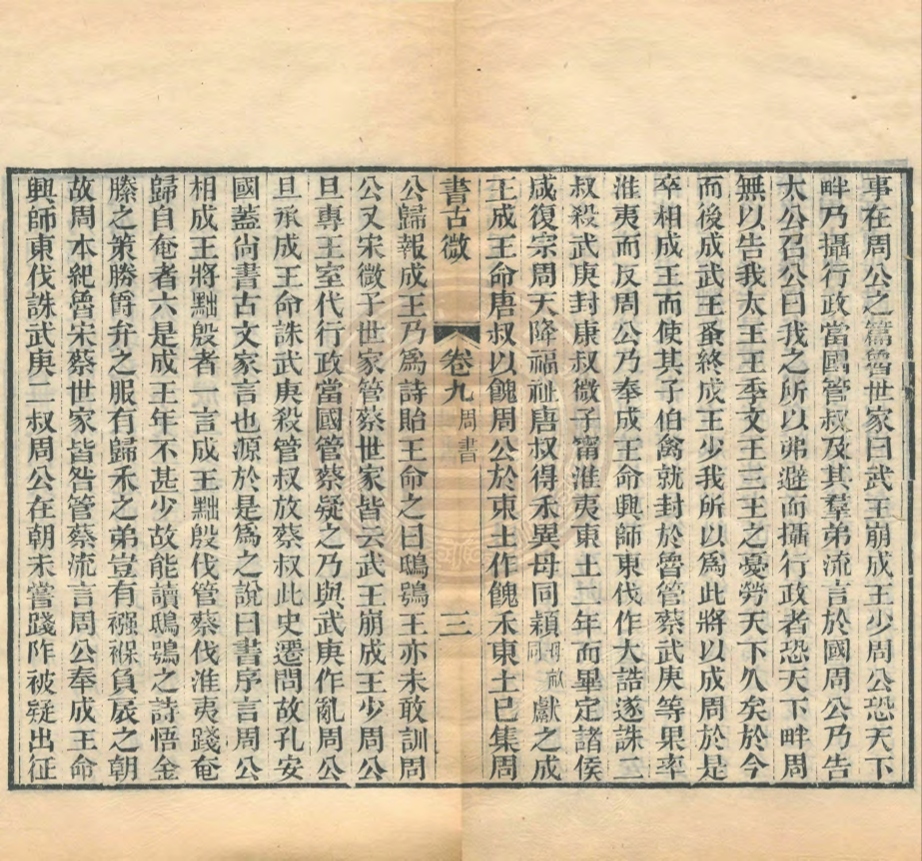 事在周公之篇魯世家曰武王崩成王少周公恐天下
畔乃攝行政當國管叔及其羣弟流言於國周公乃告
太公召公曰我之所以弗避而攝行政者恐天下畔周
無以告我太王王季文王三王之憂勞天下久矣於今
而後成武王蚤終成王少我所以爲此將以成周於是
卒相成王而使其子伯禽就封於魯管蔡武庚等果率
淮夷而反周公乃奉成王命興師東伐作大誥遂誅二
叔殺武庚封康叔微子甯淮夷東土二年而畢定諸侯
咸復宗周天降福祉唐叔得禾異母同穎母畝同獻之成
王成王命唐叔以餽周公於東土作餽禾東土已集周
書古微 卷九 周書 三
公歸報成王乃爲詩貽王命之曰鴟鴞王亦未敢訓周
公又宋微子世家管蔡世家皆云武王崩成王少周公
旦專王室代行政當國管蔡疑之乃與武庚作亂周公
旦承成王命誅武庚殺管叔放蔡叔此史遷問故孔安
國蓋尚書古文家言也源於是爲之說曰書序言周公
相成王將黜殷者一言成王黜殷伐管蔡伐淮夷踐奄
歸自奄者六是成王年不甚少故能讀鴟鴞之詩悟金
縢之策勝爵弁之服有歸禾之弟豈有襁褓負扆之朝
故周本紀魯宋蔡世家皆咎管蔡流言周公奉成王命
興師東伐誅武庚二叔周公在朝未嘗踐阼被疑出征